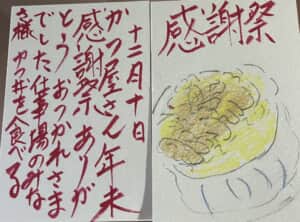 感謝祭
十二月十日
かつ屋さん年末
感謝祭ありが
とうおつかれさま
でした仕事場のみな
さ様かつ丼を食べる